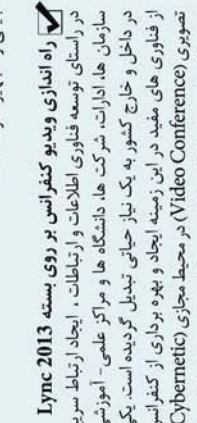 راه اندازی ویدیو کنفرانس بر روی بسته Lync 2013
در راستای توسعه فناوری اطلاعات و ارتباطات ، ایجاد ارتباط سری
سازمان ها، ادارات، شرکت ها، دانشگاه ها و مراکز علمی- آموزشی
در داخل و خارج کشور به یک نیاز حیاتی تبدیل گردیده است. یکی
از فناوری های مفید در این زمینه ایجاد و بهره برداری از کنفرانس
تصویری (Video Conference) در محیط مجازی (Cybernetic